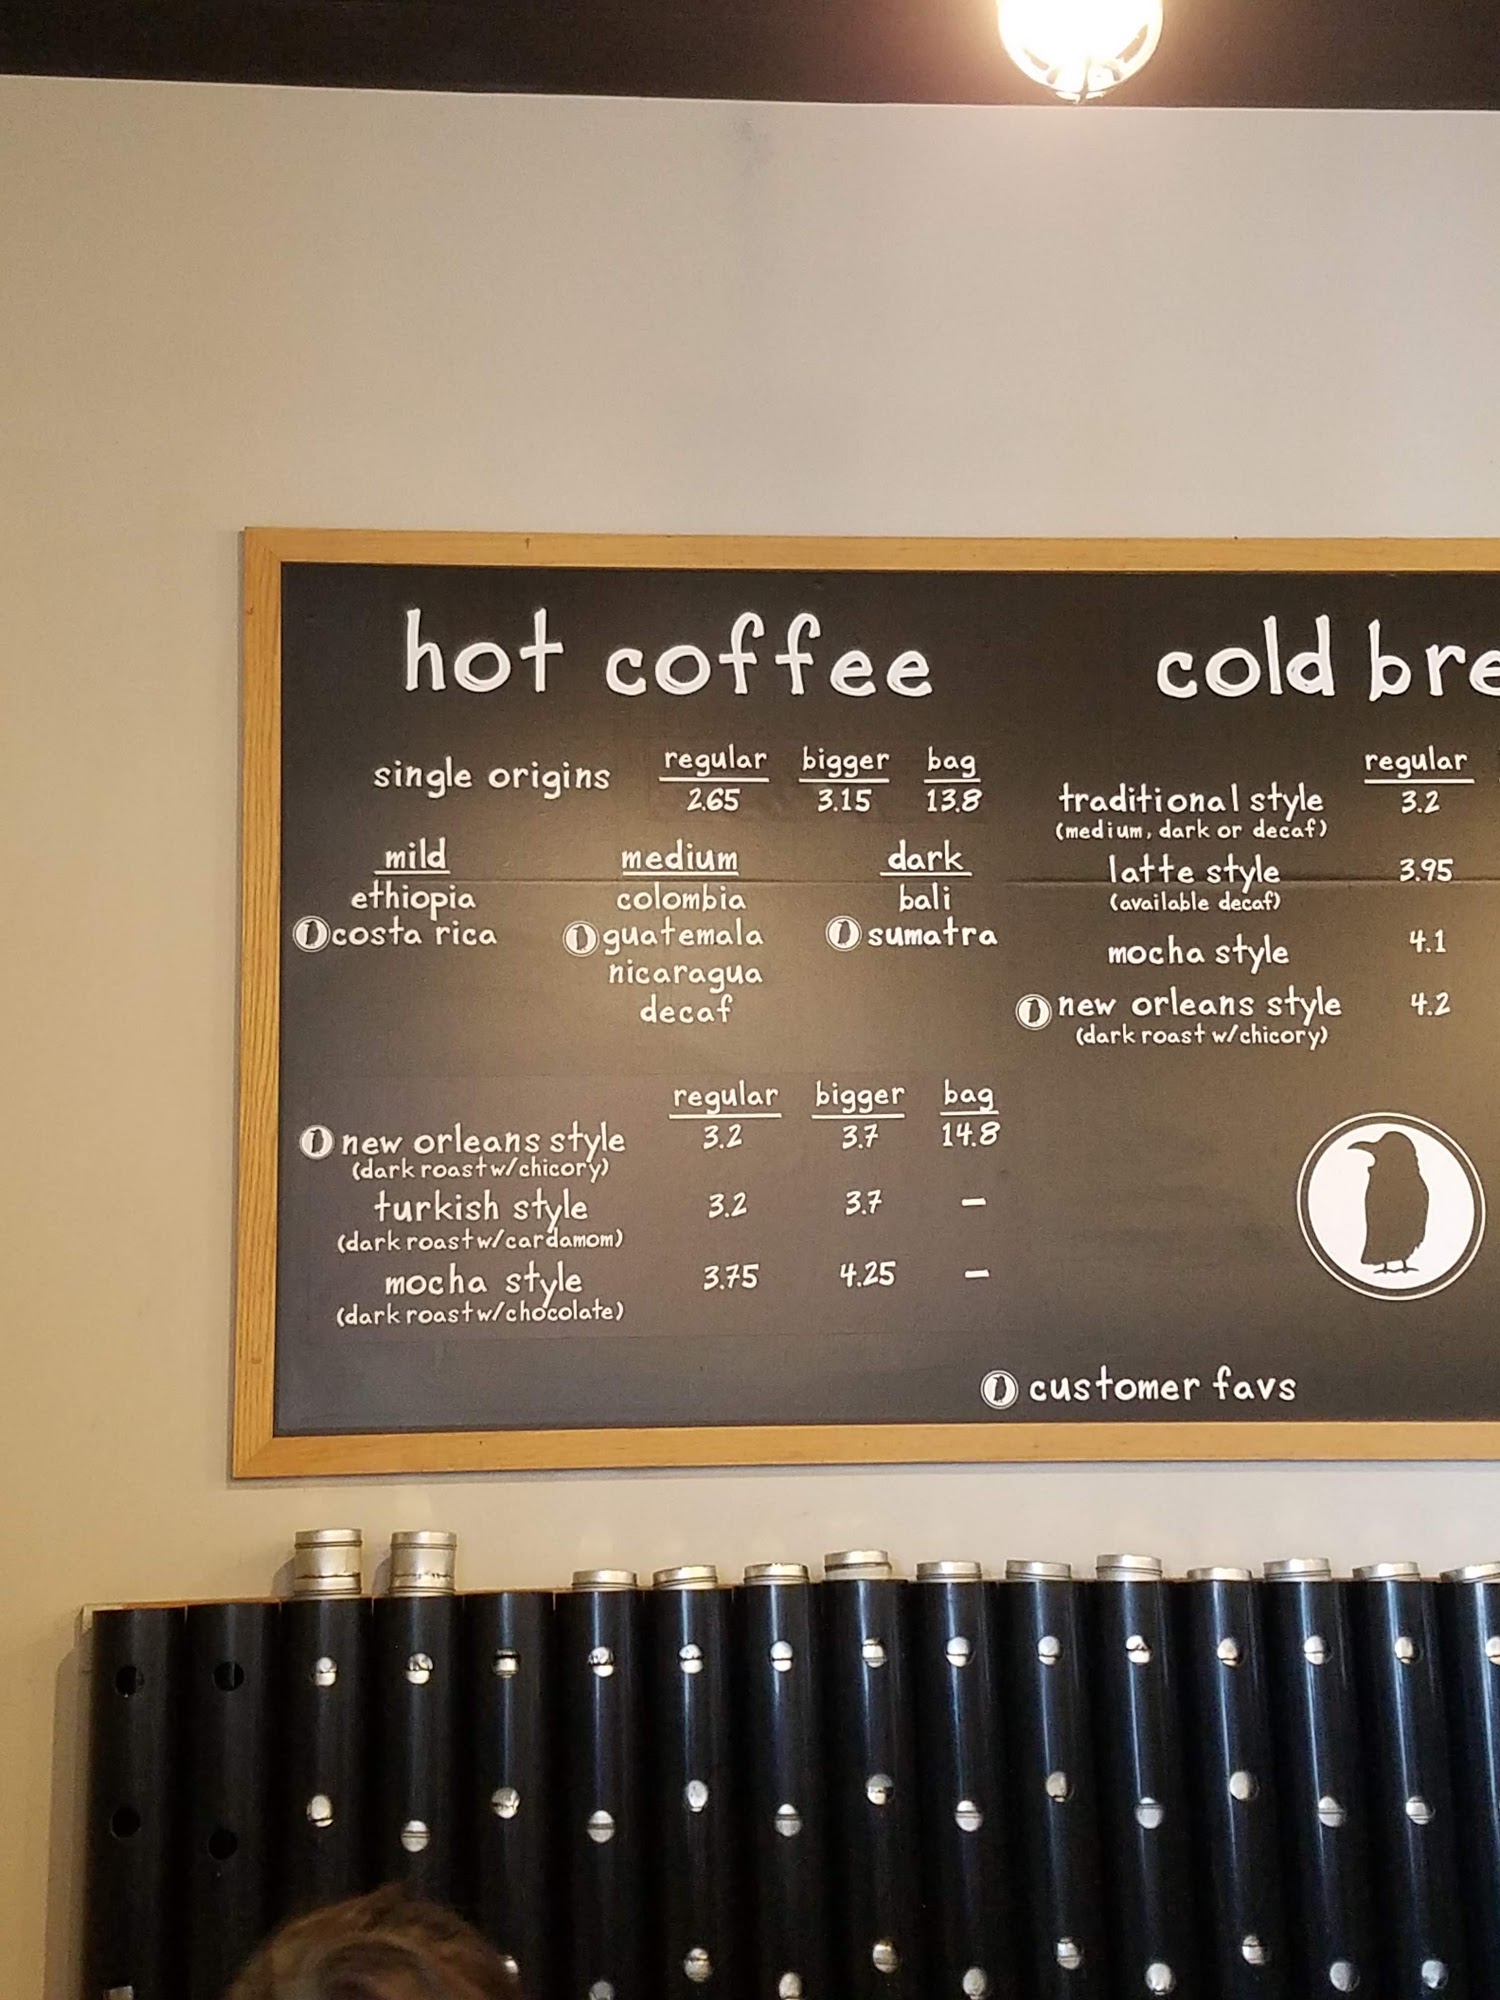 hot coffee
single origins regular bigger bag
2.65 3.15 13.8
mild medium dark
ethiopia colombia bali
costa rica guatemala sumatra
nicaragua
decaf
regular bigger bag
new orleans style 3.2 3.7 14.8
(dark roast w/chicory)
turkish style 3.2 3.7 –
(dark roast w/cardamom)
mocha style 3.75 4.25 –
(dark roast w/chocolate)
cold bre
regular
traditional style 3.2
(medium, dark or decaf)
latte style 3.95
(available decaf)
mocha style 4.1
new orleans style 4.2
(dark roast w/chicory)
customer favs